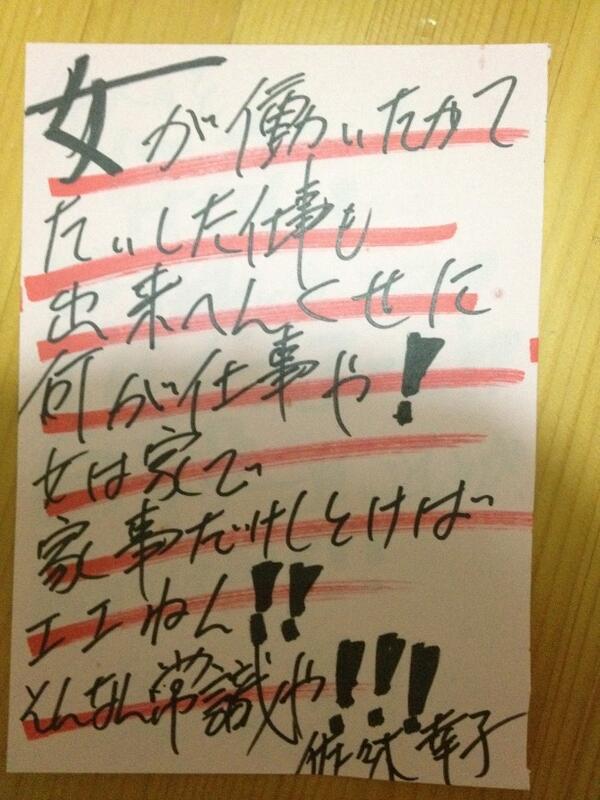 女が働いたかて
たいした仕事も
出来へんくせに
何が仕事や！
女は家で
家事だけしとけば
エエねん！！
そんなん常識や！！！
佐々木幸子